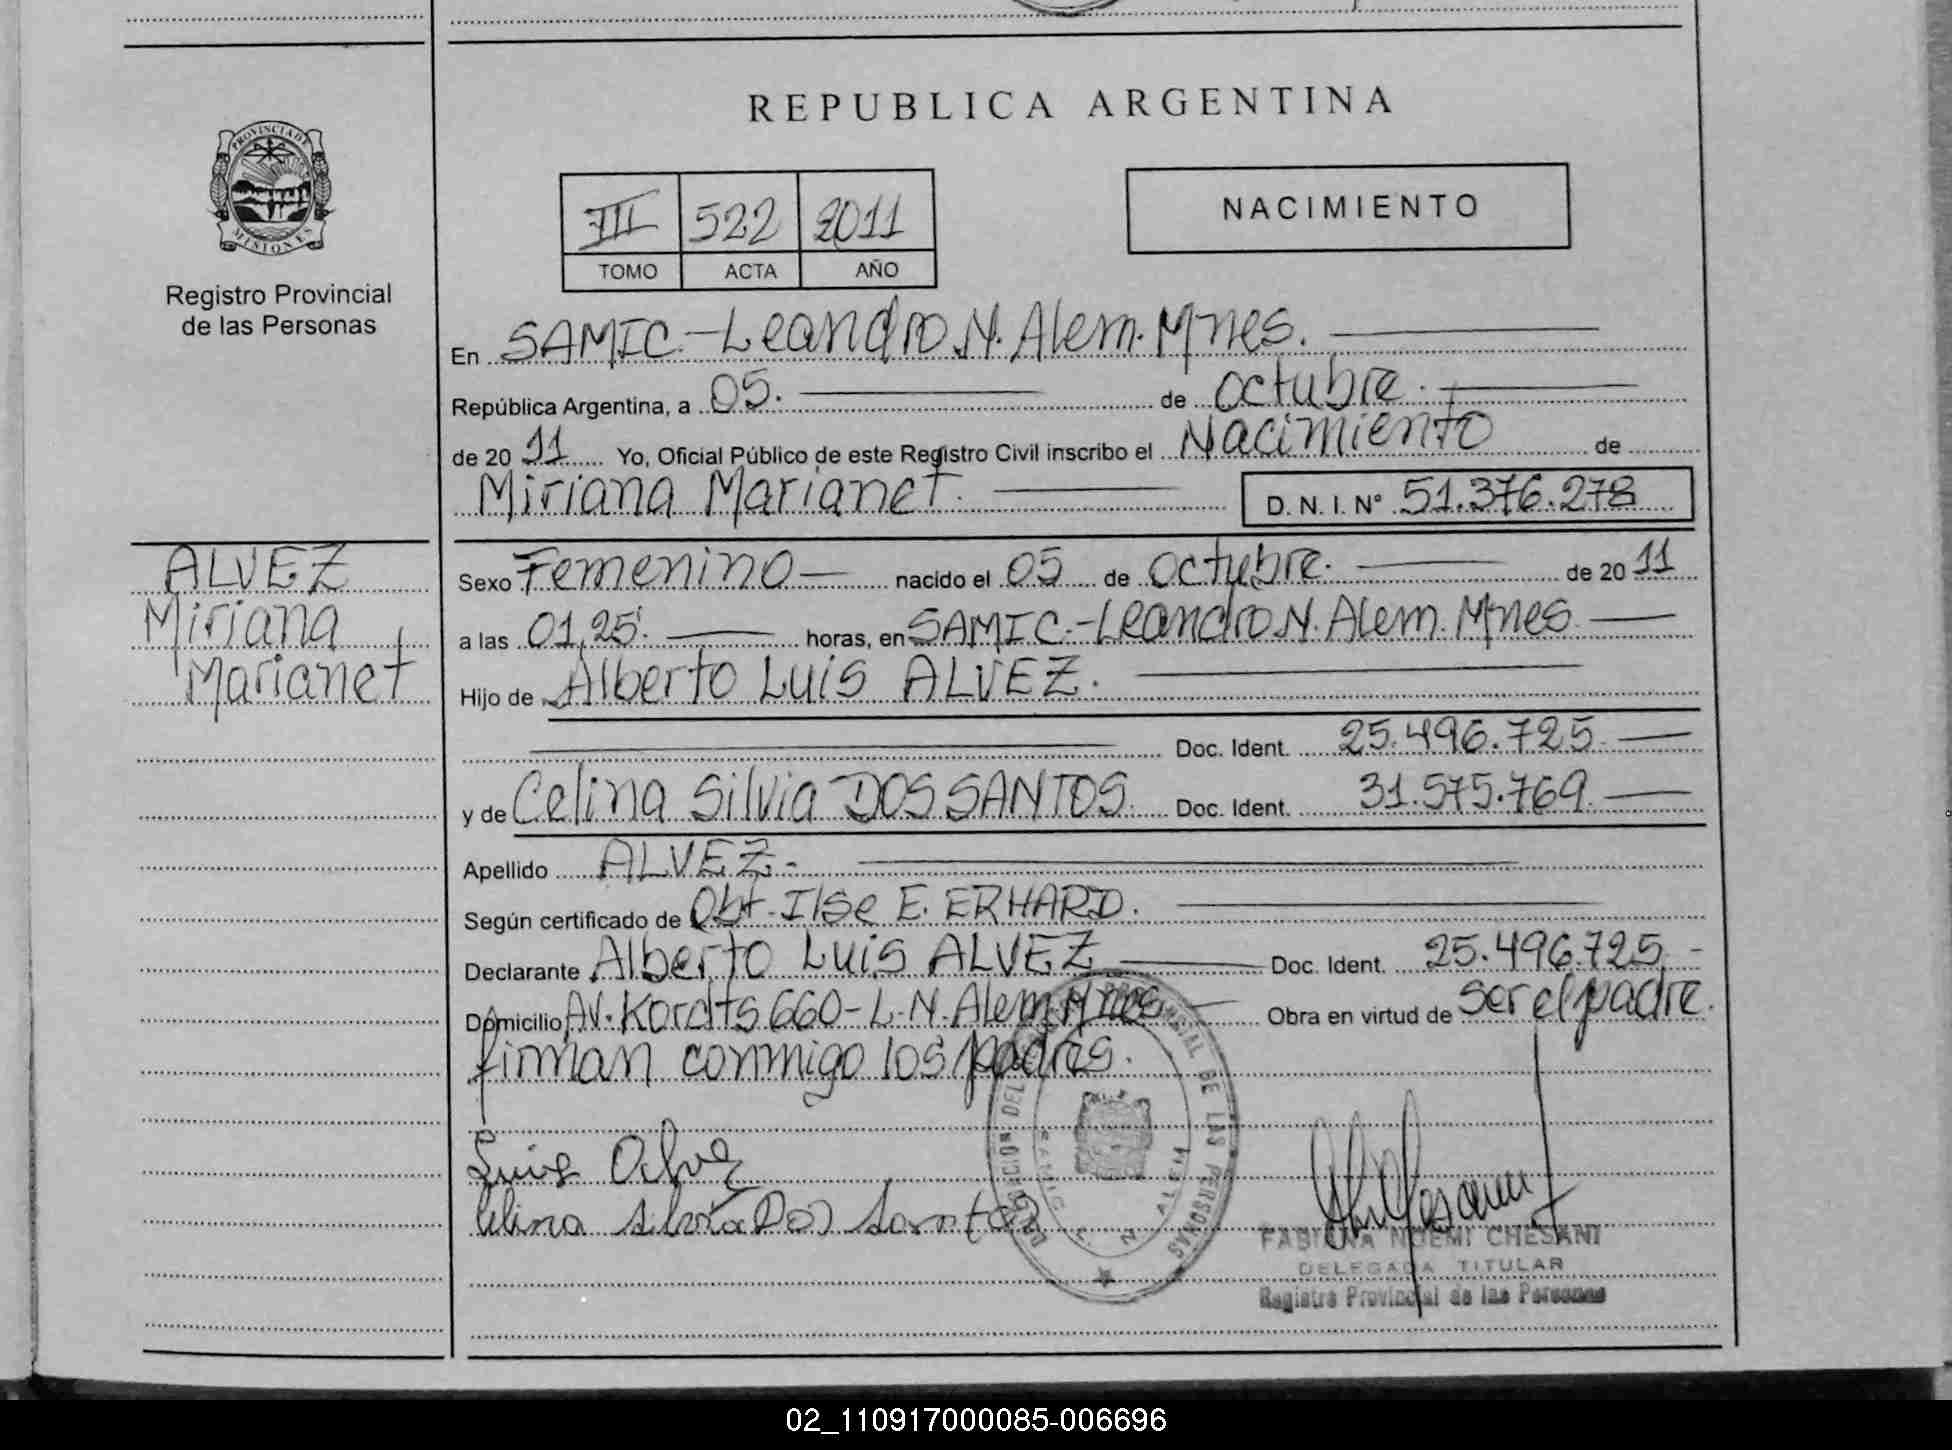 REPUBLICA ARGENTINA
PROVINCIA DE
MISIONES
Registro Provincial
de las Personas
III 522 2011
TOMO ACTA AÑO
NACIMIENTO
En SAMIC.-Leandro N. Alem. Mnes.
República Argentina, a 05. de octubre.
de 2011 Yo, Oficial Público de este Registro Civil inscribo el Nacimiento de
Miriana Marianet. D. N. I. Nº 51.376.278
ALVEZ
Miriana
Marianet
Sexo Femenino nacido el 05 de octubre. de 2011
a las 01,25. horas, en SAMIC.-Leandro N. Alem. Mnes
Hijo de Alberto Luis ALVEZ.
Doc. Ident. 25.496.725
y de Celina Silvia DOS SANTOS. Doc. Ident. 31.575.769
Apellido ALVEZ.-
Según certificado de Obt. Ilse E. ERHARD.
Declarante Alberto Luis ALVEZ Doc. Ident. 25.496.725.-
Domicilio Av. 660-L.N. Alem. Mnes Obra en virtud de ser el padre.
firman conmigo los padres.
Luis Alvez
Celina Silvia Dos Santos
DE LAS PERSONAS
FABIANA NOEMI CHESANI
DELEGADA TITULAR
Registro Provincial de las Personas
02_110917000085-006696